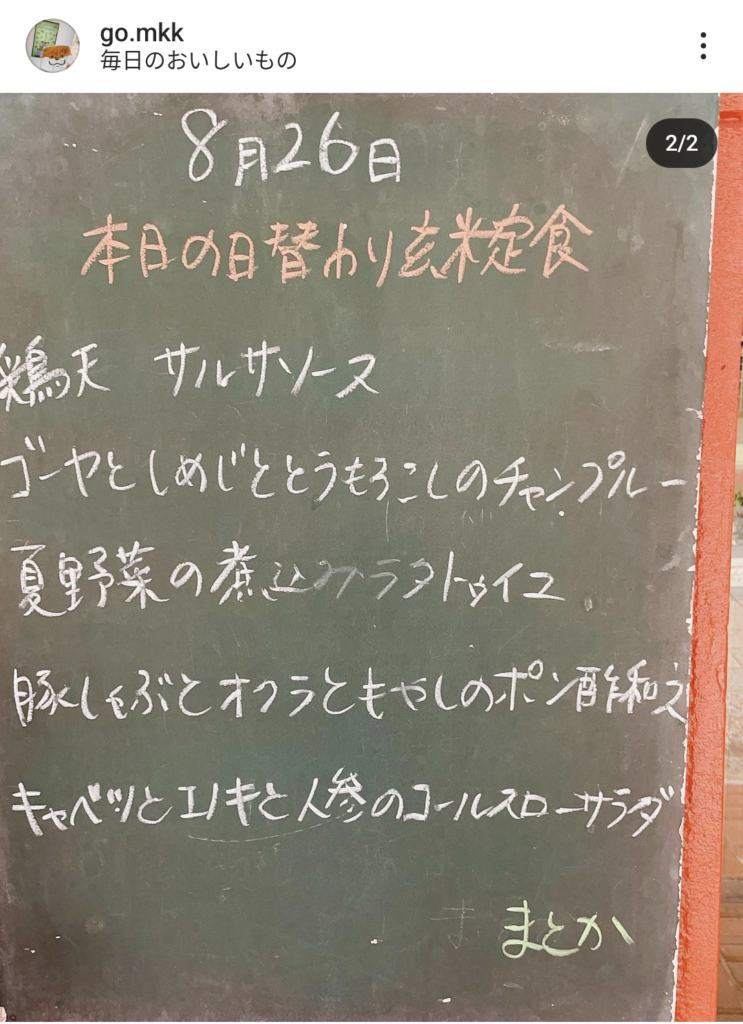 go.mkk
毎日のおいしいもの
2/2
8月26日
本日の日替わり玄米定食
鶏天 サルサソース
ゴーヤとしめじととうもろこしのチャンプルー
夏野菜の煮込みラタトゥイユ
豚しゃぶとオクラともやしのポン酢和え
キャベツとエノキと人参のコールスローサラダ
ま まとか